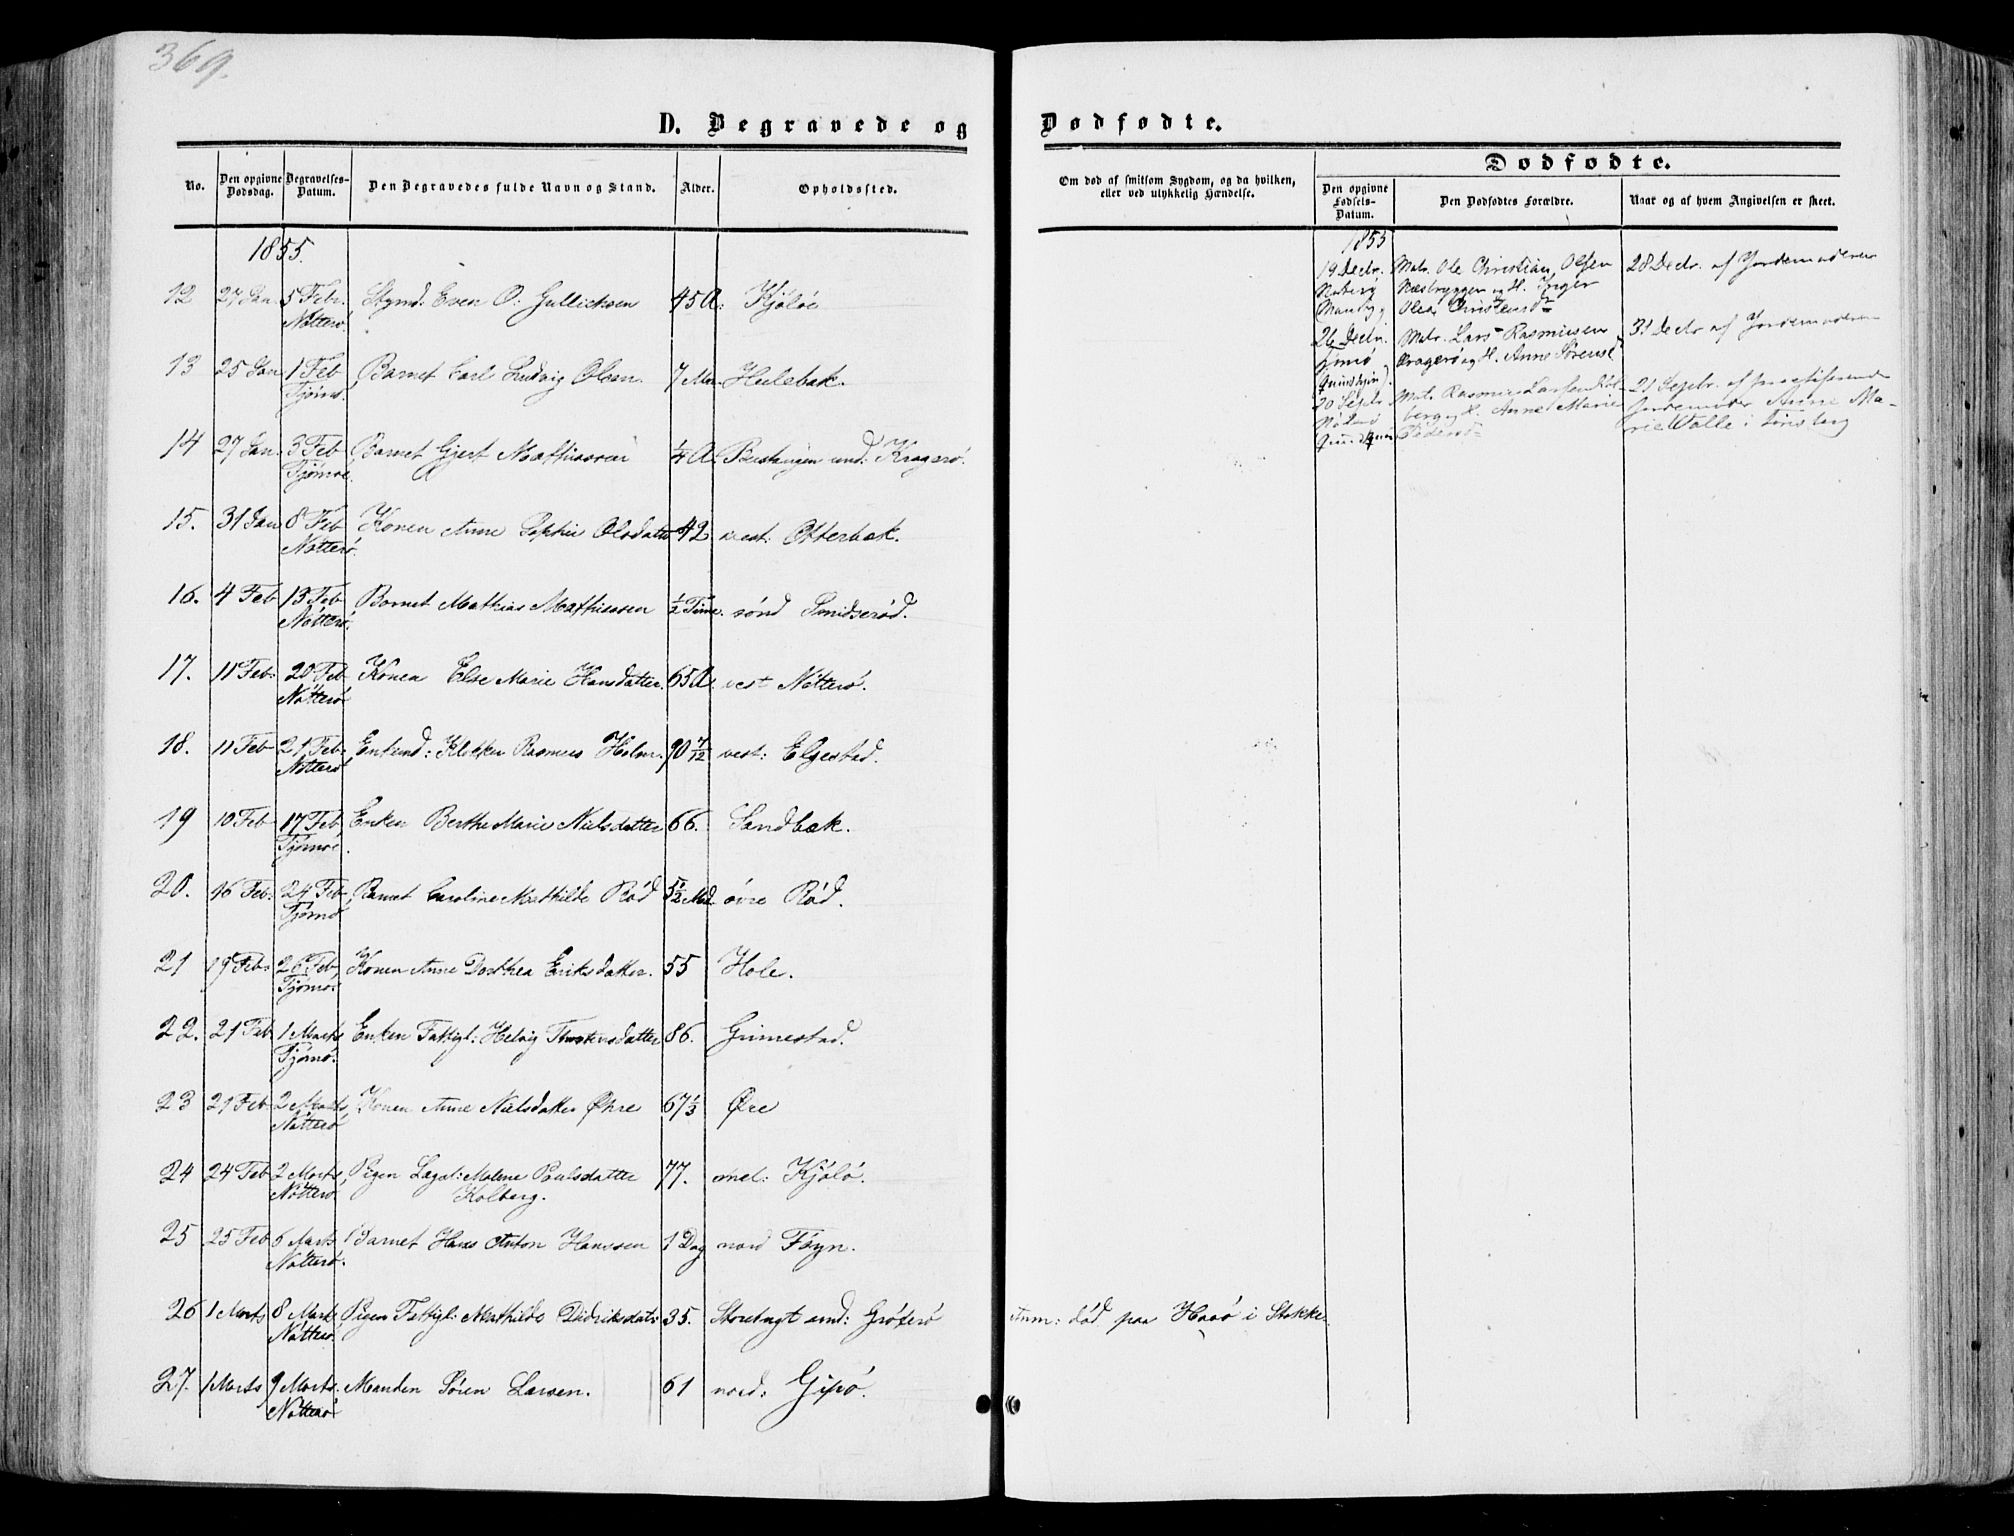 369.
D. Begravede og Dødfødte.
No.
Den opgivne Dødsdag.
Begravelses-Datum.
Den Begravedes fulde Navn og Stand.
Alder.
Opholdssted.
Om død af smitsom Sygdom, og da hvilken,
eller ved ulykkelig Hændelse.
Dødfødte.
Den opgivne Fødsels-Datum.
Den Dødfødtes Forældre.
Naar og af hvem Angivelsen er skeet.
1855.
12 27 Jan 5 Febr. Even O: Gullichsen 45 A: Kjøløe
Nøtterø
13 25 Jan 1 Feb Barnet Carl Ludvig Olsen. 7 Hulebak.
Tjømø.
14 27 Jan 3 Feb Barnet Gjert Mathiassen ¼ A. und: Kragerø.
Tjømøe.
15. 31 Jan 8 Feb Konen Anne Sophie Olsdatter 42 vest: Otterbæk.
Nøtterø.
16. 4 Feb 13 Feb Barnet Mathias Mathiassen ½ Time. sønd Smidserød.
Nøtterø.
17. 11 Feb: 20 Feb Konen Else Marie Hansdatter. 65 A. vest Nøtterø.
Nøtterø
18. 11 Feb 21 Feb. Enkemd: Klokker Rasmus Holm. 90 7/12 vest: Elgestad.
Nøtterø
19 10 Feb 17 Feb Enken Berthe Marie Nielsdatter 66. Sandbæk.
Tjømøe.
20. 16 Feb: 24 Feb Barnet Caroline Mathilde Rød 5½ Md. øvre Rød.
Tjømø
21 19 Feb: 26 Feb, Konen Anne Dorthea Eriksdatter. 55 Hole.
Tjømø.
22. 21 Feb 1 Marts Enken Fattigl: Helvig Thorstensdatter 86. Grimestad.
Tjømø.
23 21 Feb 2 Marts Konen Anne Nielsdatter Øhre 67⅓ Øre
Nøtterø
24 24 Feb 2 Marts Pigen Lægsl: Malene Poulsdatter 77. mel: Kjøløe.
Nøtterø Kolberg.
25 25 Feb 6 Marts Barnet Hans Anton Hanssen 1 Dag nord Føyn.
Nøtterø.
26 1 Marts 8 Marts Pigen Fattigl: Mathilde Didriksdatr: 35. und: Grøterø Anm: død paa Haaø i Stokke.
Nøtterø
27. 1 Marts 9 Marts. Manden Søren Larsen. 61 nord: Gipø.
Nøtterø
1855
19 Decbr. Matr. Ole Christian Olsen 28 Decbr. af Jordemoderen
Næsbryggen og H. Inger
Olea Christensdr
26 Decbr. Matr. Lars Rasmussen 31 Decbr af Jordemoderen
Kragerø og H. Anne Sørensd
20 Septbr Matr. Rasmus Larsen 21 Septbr. af practiserende
og H. Anne Marie Jordemoder Anne Ma-
Pedersdr rie Valle i Tønsberg